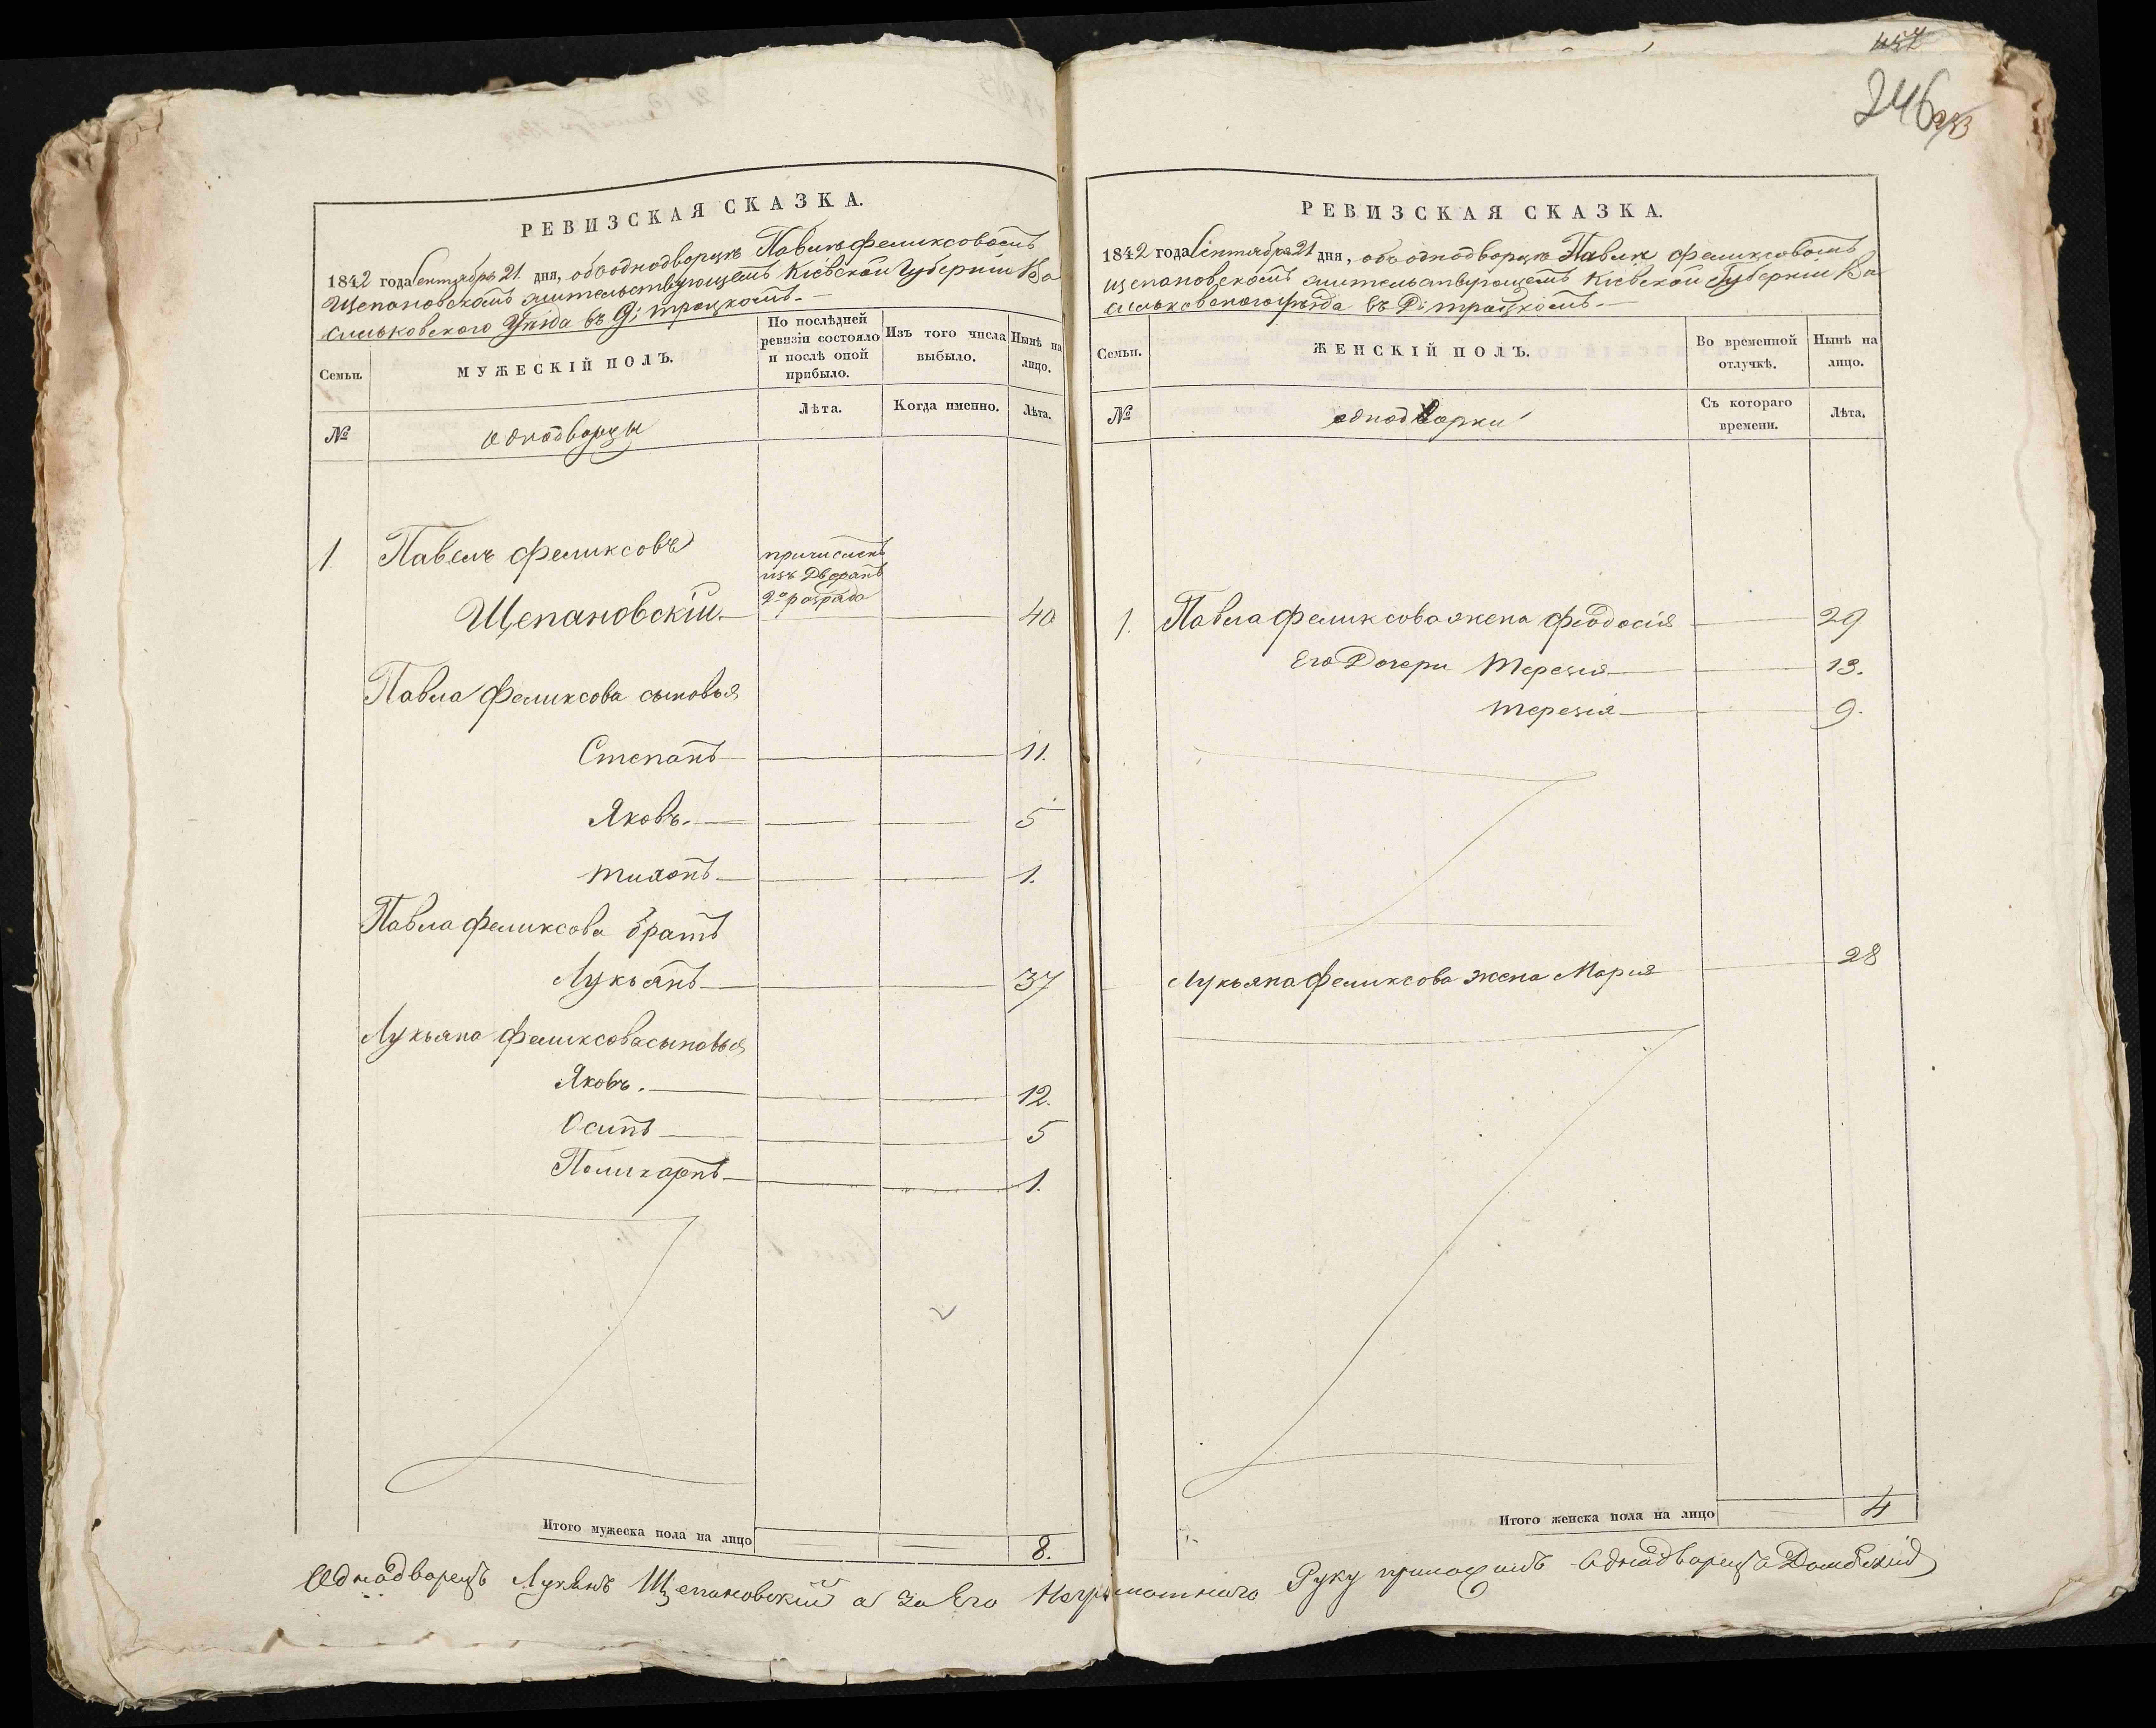 457
246
РЕВИЗСКАЯ СКАЗКА.
1842 года Сентября 21 дня, объ однодворцѣ Павлѣ Феликсовомъ
Щепановскомъ жительствующемъ Кіевской Губерніи Ва
сильковского Уѣзда въ Д: троцкомъ.
Семьи.
МУЖЕСКІЙ ПОЛЪ.
По послѣдней ревизіи состояло и послѣ оной прибыло.
Изъ того числа выбыло.
Нынѣ на лицо.
№
однодворцы
Лѣта.
Когда именно.
Лѣта.
1 Павелъ Феликсовъ
причисленъ
изъ Дворянъ
2го разряда
Щепановскій 40
Павла Феликсова сыновья
Степанъ 11.
Яковъ. 5
тихонъ 1.
Павла Феликсова братъ
Лукьянъ 37
Лукьяна Феликсова сыновья
Яковъ. 12.
Осипъ 5
Поликарпъ 1.
Итого мужеска пола на лицо 8.
РЕВИЗСКАЯ СКАЗКА.
1842 года Сентября 21 дня, объ однодворцѣ Павлѣ Феликсовомъ
щепановскомъ жительствующемъ Кіевской Губерніи Ва
сильковского уѣзда въ Д: троцкомъ.
Семьи.
ЖЕНСКІЙ ПОЛЪ.
Во временной отлучкѣ.
Нынѣ на лицо.
№
однодворки
Съ котораго времени.
Лѣта.
1. Павла Феликсова жена Феодосія 29
Его Дочери Терезія 13.
терезія 9.
Лукьяна Феликсова жена Марія 28
Итого женска пола на лицо 4
Однадворецъ Лукянъ Щепановский а за Его Неграмотного Руку приложилъ Однадворецъ Домбский